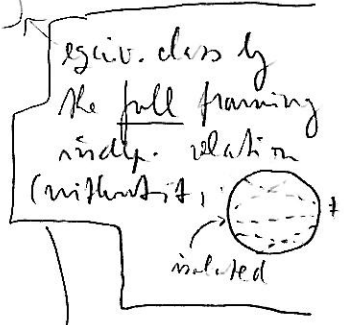 equiv. class by
the full framing
indep. relation
(without it,
isolated